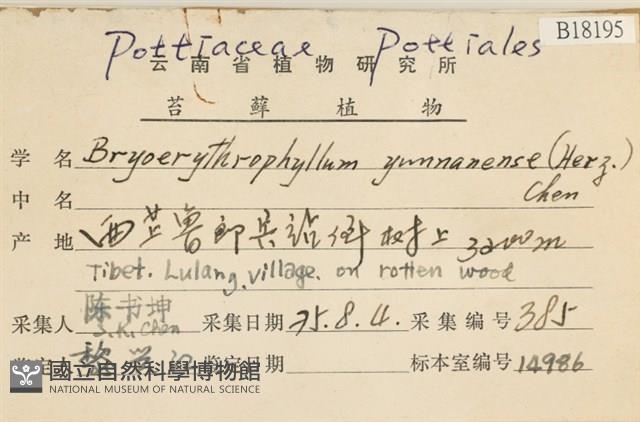 B18195
Pottiaceae Pottiales
云南省植物研究所
苔藓植物
学名 Bryoerythrophyllum yunnanense (Herz.)
中名 Chen
产地 西芷鲁郎兵站倒树上 3200m
Tibet. Lulang, village. on rotten wood
陈书坤
采集人 S.K. Chen 采集日期 75.8.4. 采集编号 385
黎兴江 鉴定日期 标本室编号 14986
國立自然科學博物館
NATIONAL MUSEUM OF NATURAL SCIENCE